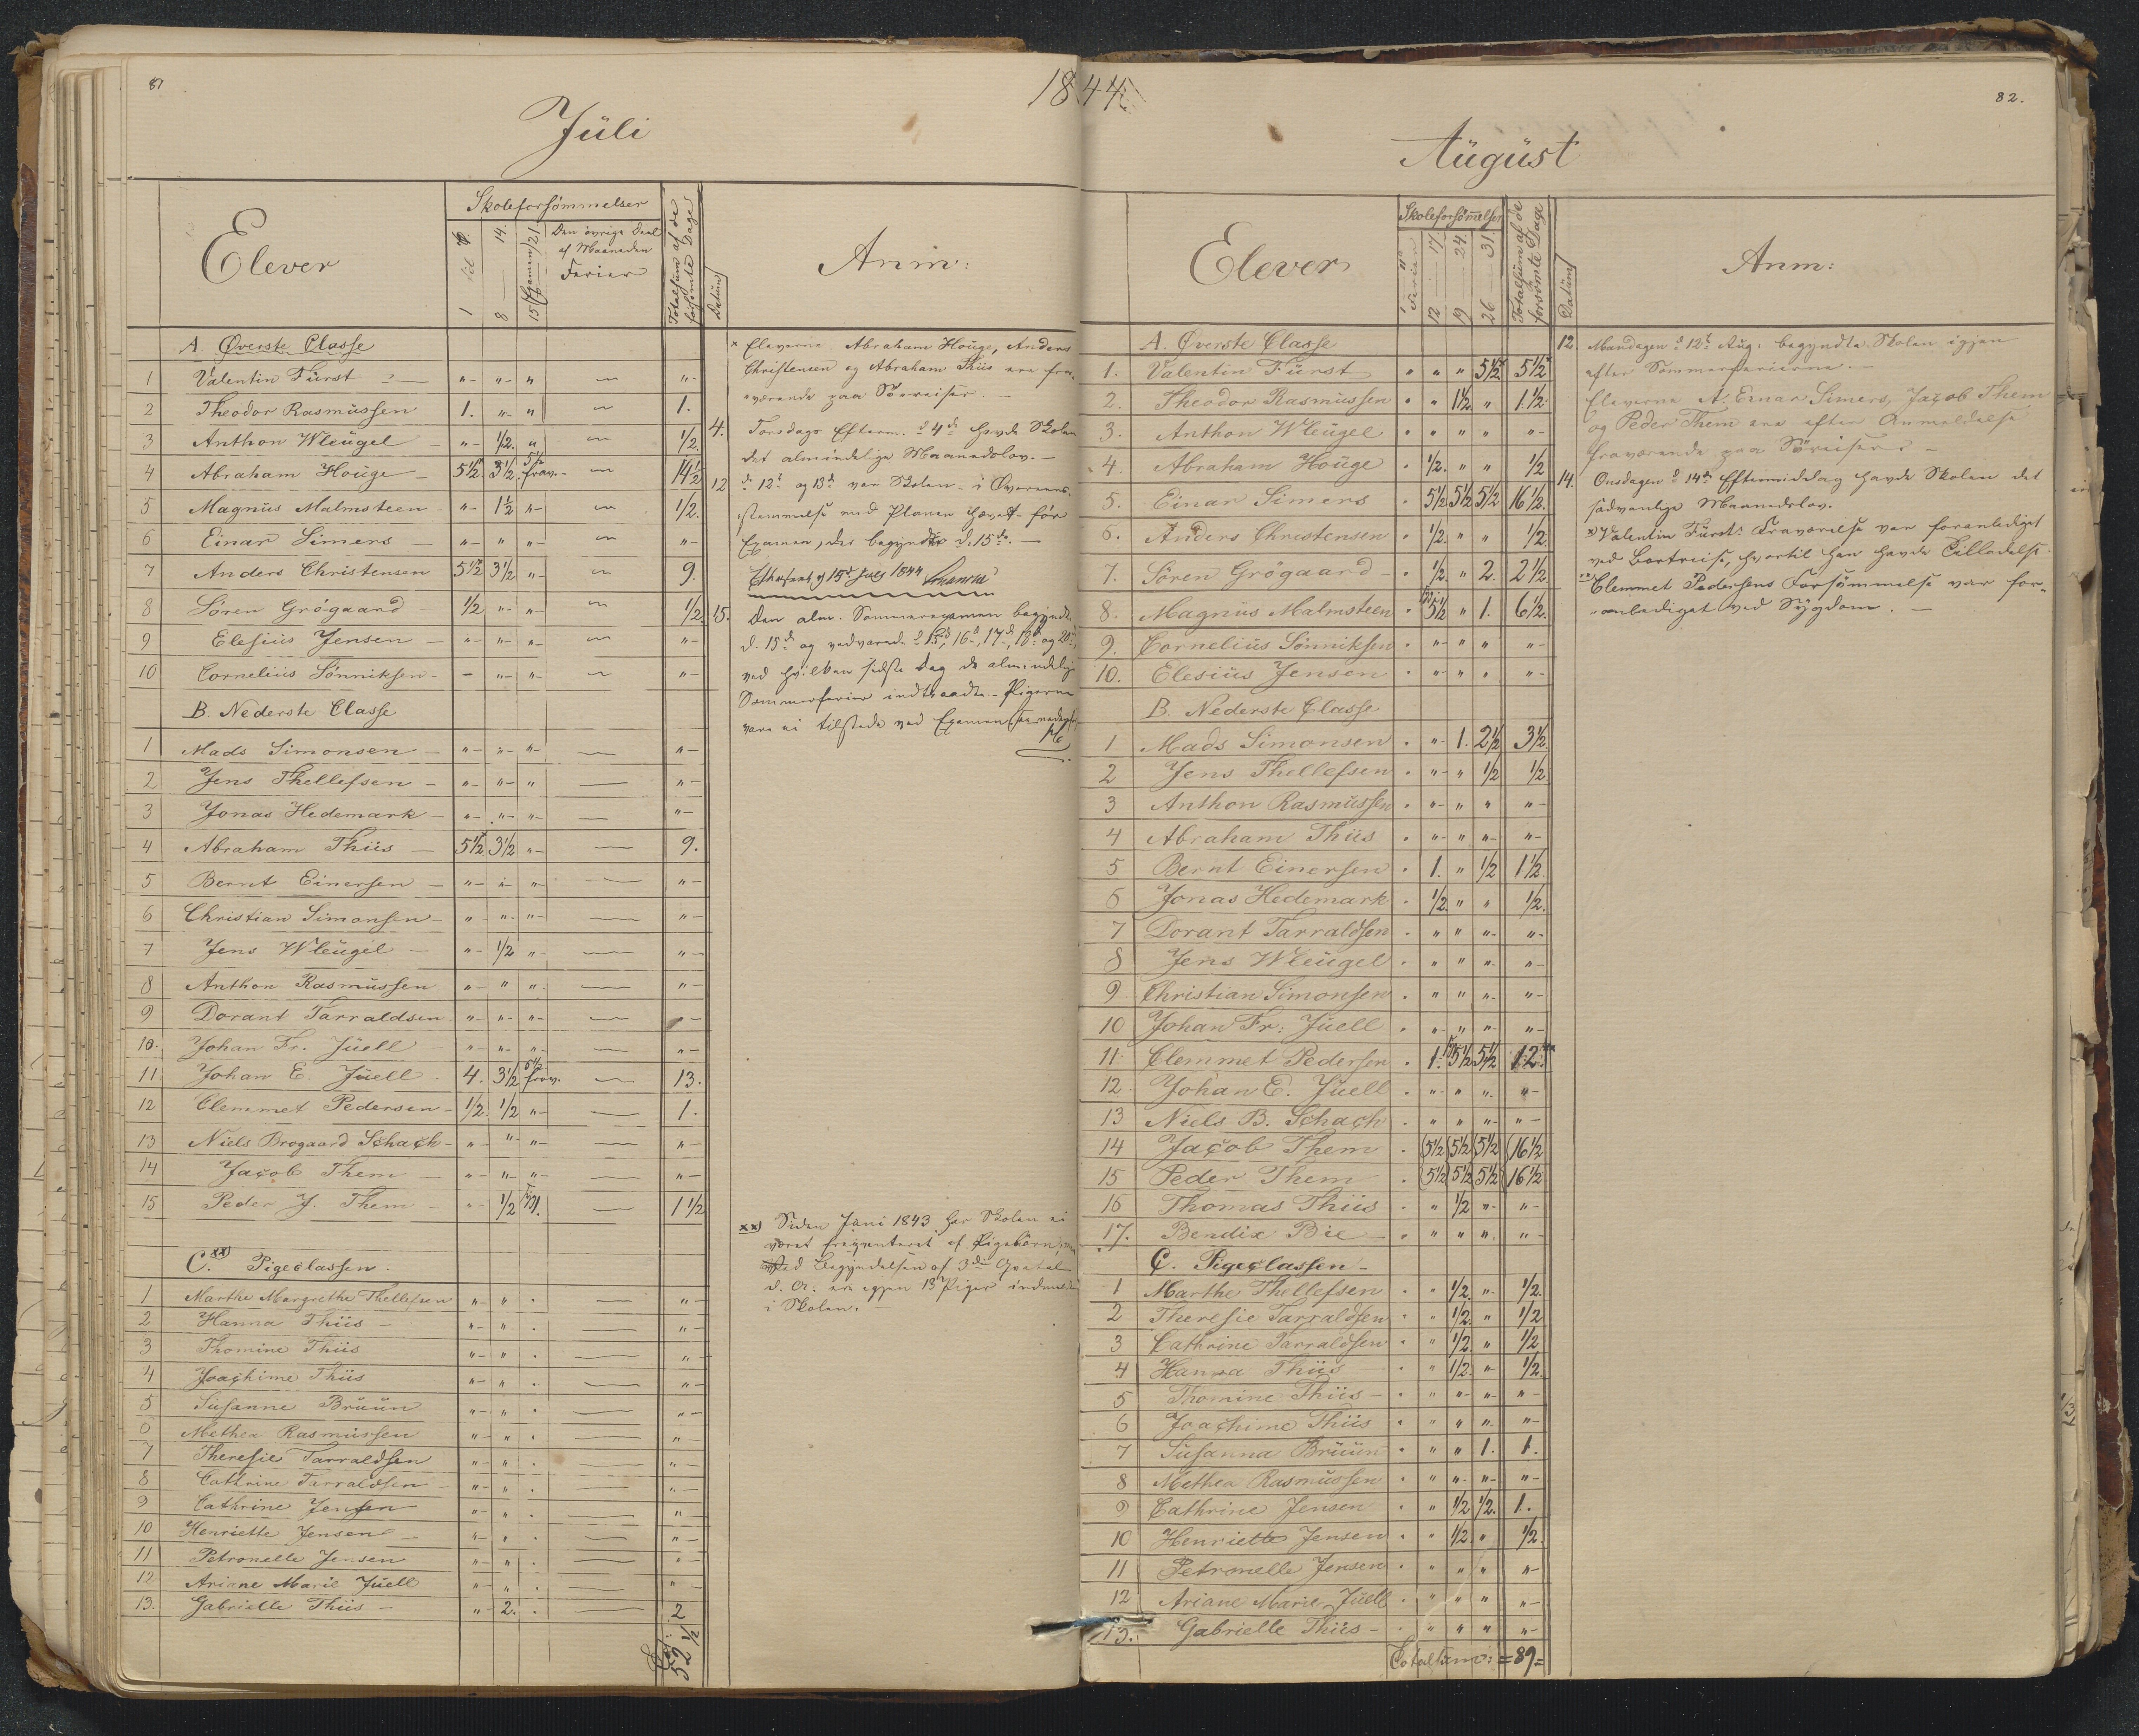 81
1844.
82.
Jüli
Elever
Skoleforsömmelser
1 til 6.
8 — 14.
15 Examen 21
Den övrige Deel
af Maaneden
Ferier
Totalsum af de
forsömte Dage
Datum
Anm:
A Øverste Classe
1 Valentin Fürst „ „ „ — „
2 Theodor Rasmüssen 1. „ „ — 1.
3 Anthon Wleügel „ 1/2. „ — 1/2.
4 Abraham Houge 5 1/2. 3 1/2. 5 1/2 frav. — 14 1/2
5 Magnüs Malmsteen „ 1/2 „ — 1/2.
6 Einar Simers „ „ „ — „
7 Anders Christensen 5 1/2 3 1/2 „ — 9.
8 Sören Grögaard 1/2 „ „ — 1/2.
9 Elesiüs Jensen „ „ „ — „
10 Corneliüs Sönniksen — „ „ — „
B. Nederste Classe
1 Mads Simonsen „ „ „ — „
2 Jens Thellefsen „ „ „ — „
3 Jonas Hedemark „ „ „ — „
4 Abraham Thiis 5 1/2 3 1/2 „ — 9.
5 Bernt Einersen „ „ „ — „
6 Christian Simonsen „ „ „ — „
7 Jens Wleügel „ 1/2 „ — „
8 Anthon Rasmüssen „ „ „ — „
9 Dorant Tarraldsen „ „ „ — „
10. Johan Fr. Jüell „ „ „ — „
11 Johan E. Jüell. 4. 3 1/2 5 1/2 frav. — 13.
12 Clemmet Pedersen 1/2 1/2 „ — 1.
13 Niels Brogaard Schach „ „ „ — „
14 Jacob Them „ „ „ — „
15 Peder J. Them „ 1/2 1. — 1 1/2
C. xx) Pigeclassen.
1 Marthe Margrethe Thellefsen „ „ . — „
2 Hanna Thiis „ „ . — „
3 Thomine Thiis „ „ . — „
4 Joachime Thiis „ „ . — „
5 Süsanne Brüün „ „ . — „
6 Methea Rasmüssen „ „ . — „
7 Theresie Tarraldsen „ „ . — „
8 Cathrine Tarraldsen „ „ . — „
9 Cathrine Jensen „ „ . — „
10 Henriette Jensen „ „ . — „
11 Petronelle Jensen „ „ . — „
12 Ariane Marie Jüell „ „ . — „
13. Gabrielle Thiis „ 2. . — 2
52 1/2
x Eleverne Abraham Houge, Anders
Christensen og Abraham Thiis ere fra-
værende paa Söereiser. —
4. Torsdags Efterm. d 4de havde Skolen
det almindelige Maanedslov. —
12 d. 12t og 13d var Skolen i Overeens-
stemmelse med Planen hævet for
Examen, der begyndte d. 15de. —
15 Juli 1844
15. Den alm. Sommerexamen begyndte
d. 15d og vedvarede d 15d, 16d, 17d, 18d og 20d,
ved hvilken sidste Dag de almindelige
Sommerferier indtraadte. — Pigerne
vare ei tilstede ved Examen
xx) Siden Juni 1843 har Skolen ei
været freqventeret af Pigebörn, men
ved Begyndelsen af 3die Qvartal
d. A: ere igjen 13 Piger indmeldte
i Skolen. —
Aügüst
Elever
Skoleforsömmelser
1 — 11
Ferier
12 — 17.
19 — 24.
26 — 31.
Totalsum af de
forsömte Dage
Datüm
Anm:
A. Øverste Classe
1. Valentin Fürst „ „ „ 5 1/2 x 5 1/2 x
2. Theodor Rasmüssen „ „ 1 1/2. „ 1 1/2.
3. Anthon Wleügel „ „ „ „ „
4. Abraham Houge . 1/2. „ „ 1/2
5. Einar Simers . 5 1/2 5 1/2 5 1/2 16 1/2.
6. Anders Christensen . 1/2. „ „ 1/2.
7. Sören Grögaard . 1/2. „ 2. 2 1/2
8. Magnüs Malmsteen . 5 1/2 „ 1. 6 1/2.
9. Corneliüs Sönniksen . „ „ „ „
10. Elesiüs Jensen . „ „ „ „
B. Nederste Classe
1 Mads Simonsen . „ 1. 2 1/2 3 1/2.
2 Jens Thellefsen . „ „ 1/2 1/2
3 Anthon Rasmüssen . „ „ „ „
4 Abraham Thiis . „ „ „ „
5 Bernt Einersen . 1. „ 1/2 1 1/2.
6 Jonas Hedemark . 1/2. „ „ 1/2.
7 Dorant Tarraldsen . „ „ „ „
8 Jens Wleügel . „ „ „ „
9 Christian Simonsen . „ „ „ „
10 Johan Fr: Jüell . „ „ „ „
11. Clemmet Pedersen . 1. 5 1/2 5 1/2 12. xx
12. Johan E. Jüell . „ „ „ „
13 Niels B. Schach . „ „ „ „
14 Jacob Them . (5 1/2 (5 1/2 (5 1/2 (16 1/2
15 Peder Them . (5 1/2 5 1/2 5 1/2 16 1/2
16 Thomas Thiis . „ 1/2 „ „
17. Bendix Bie „ „ „ „ „
C. Pigeclassen —
1 Marthe Thellefsen . „ 1/2. „ 1/2.
2 Theresie Tarraldsen . „ 1/2. „ 1/2
3 Cathrine Tarraldsen . „ 1/2. „ 1/2
4 Hanna Thiis . „ 1/2. „ 1/2.
5 Thomine Thiis . „ „ „ „
6 Joachime Thiis . „ „ „ „
7 Süsanna Brüün . „ „ 1. 1.
8 Methea Rasmüssen . „ „ „ „
9 Cathrine Jensen . „ 1/2 1/2. 1.
10 Henriette Jensen . „ 1/2. „ 1/2.
11 Petronelle Jensen . „ „ „ „
12 Ariane Marie Jüell . „ „ „ „
13. Gabrielle Thiis . „ „ „ „
Totalsum: = 89 =
12. Mandagen d 12t Aug: begyndte Skolen igjen
efter Sommerferierne. —
Eleverne A: Einar Simers, Jacob Them
og Peder Them ere efter Anmeldelse
fraværende paa Söreiser. —
14. Onsdagen d 14d Eftermiddag havde Skolen det
sædvanlige Maanedslov.
x) Valentin Fürsts Fraværelse var foranlediget
ved Bortreise, hvortil han havde Tilladelse.
xx Clemmet Pedersens Forsömmelse var for-
anlediget ved Sygdom. —